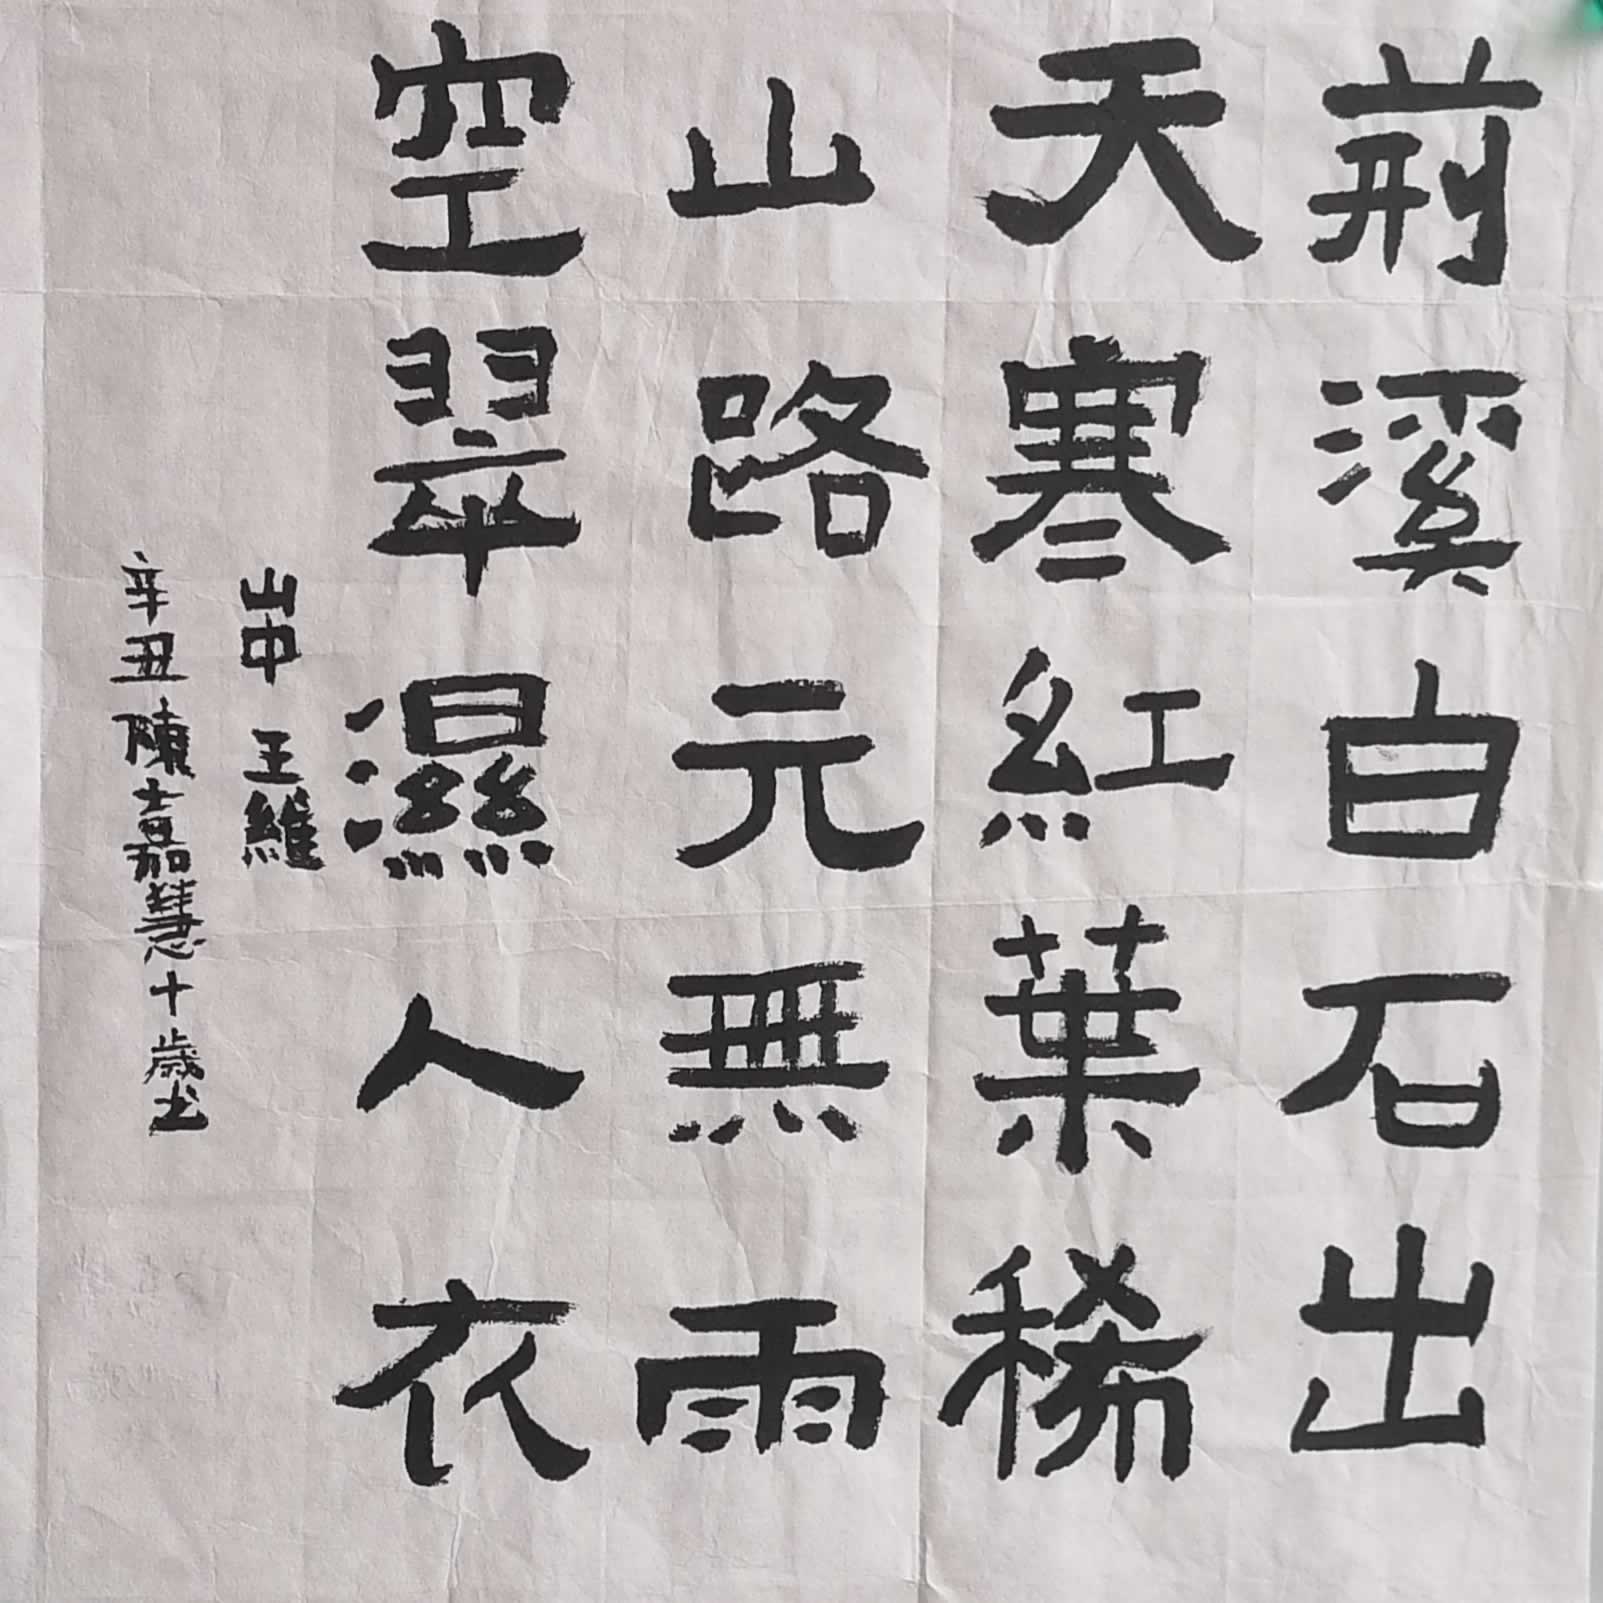 荊溪白石出
天寒紅葉稀
山路元無雨
空翠濕人衣
山中 王維
辛丑陳嘉慧十歲书